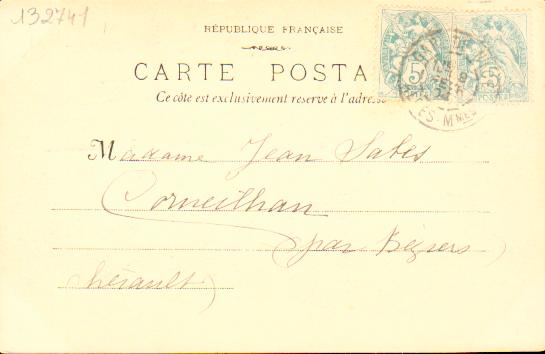 132741
RÉPUBLIQUE FRANÇAISE
CARTE POSTA
Ce côté est exclusivement réservé à l'adresse
Madame Jean Sabes
Corneilhan
(par Béziers)
hérault